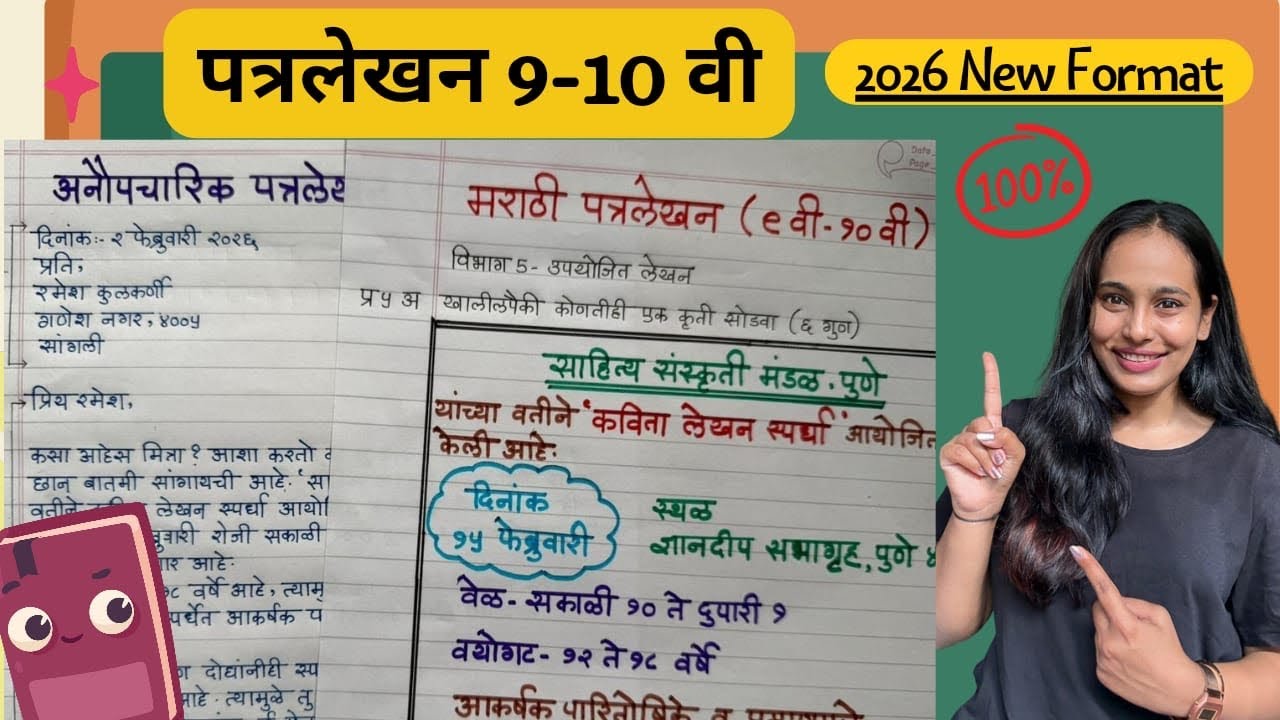 पत्रलेखन 9-10 वी
2026 New Format
100%
अनौपचारिक पत्रले
दिनांक:- २ फेब्रुवारी २०२६
प्रति,
रमेश कुलकर्णी
गणेश नगर, ४००५
सांगली
प्रिय रमेश,
कसा आहेस मित्रा? आशा करतो
छान बातमी सांगायची आहे. 'सा
वतीने लेखन स्पर्धा आयो
रोजी सकाळी
आहे.
वर्षे आहे, त्याम
आकर्षक प
दोघांनीही स्प
आहे. त्यामुळे तु
Date
Page
मराठी पत्रलेखन (९वी-१०वी)
विभाग 5- उपयोजित लेखन
प्र ५ अ खालीलपैकी कोणतीही एक कृती सोडवा (६ गुण)
साहित्य संस्कृती मंडळ. पुणे
यांच्या वतीने 'कविता लेखन स्पर्धा' आयोजित
केली आहे.
दिनांक
१५ फेब्रुवारी
स्थळ
ज्ञानदीप सभागृह, पुणे
वेळ- सकाळी १० ते दुपारी १
वयोगट- १२ ते १८ वर्षे
आकर्षक पारितोषिके व